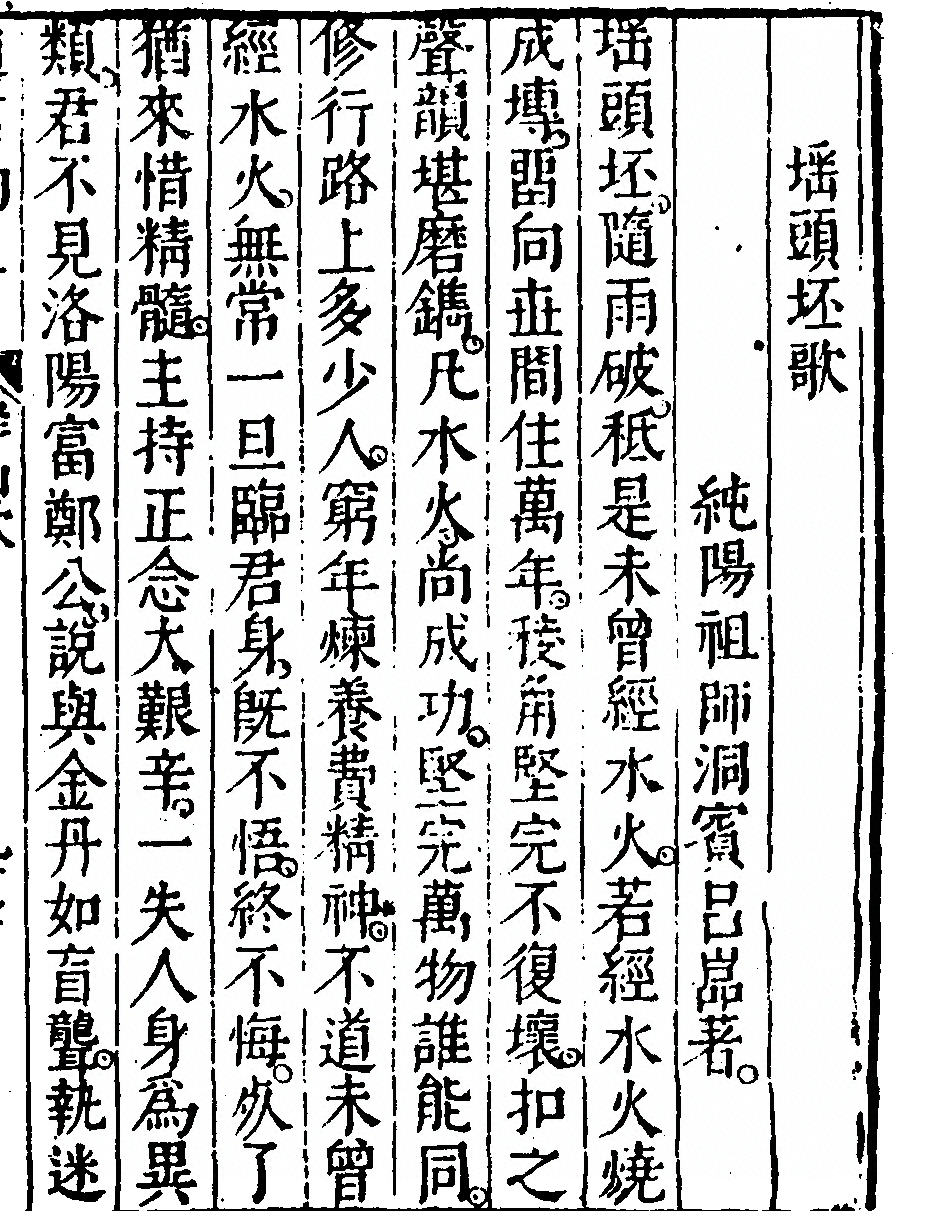 㙘頭坯歌
純陽祖師洞賓呂嵓著。
㙘頭坯。隨雨破。秪是未曾經水火。若經水火燒
成塼。留向世間住萬年。稜角堅完不復壞。扣之
聲韻堪磨鐫。凡水火。尚成功。堅完萬物誰能同。
修行路上多少人。窮年煉養費精神。不道未曾
經水火。無常一旦臨君身。既不悟。終不悔。死了
猶來惜精髓。主持正念大艱辛。一失人身爲異
類。君不見洛陽富鄭公。說與金丹如盲聾。執迷